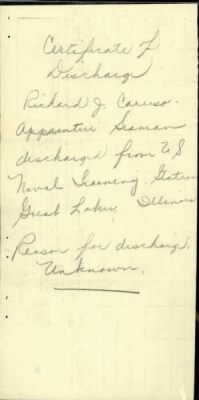 Certificate of
Discharge
Richard J. Caruso.
Apprentice Seaman
discharged from U S
Naval Training Station
Great Lakes, Illinois
Reason for discharge,
Unknown.